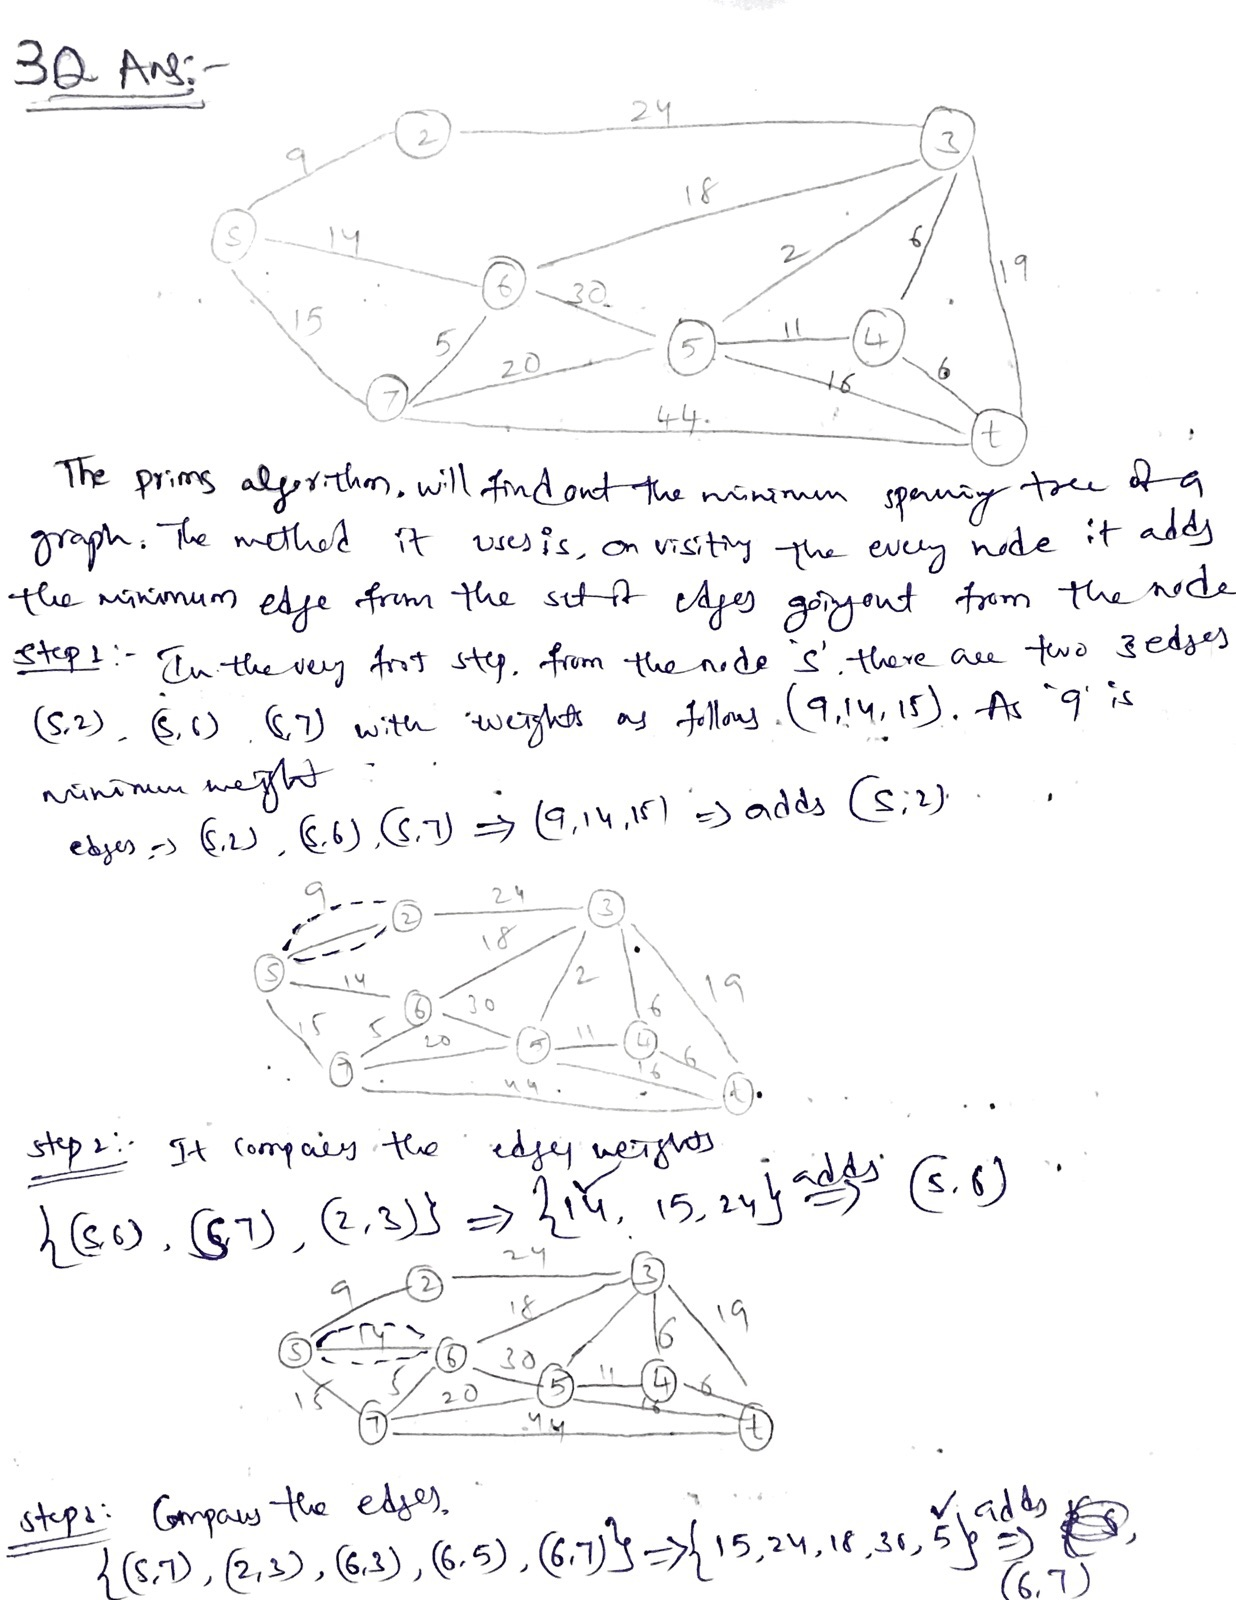 3Q Ans:-
24
2
3
9
18
S
14
2
6
19
6
30
15
5
11
4
5
20
16
6
7
44
t
The prims algorithm. will find out the minimum spaning tree of a
graph. The method it uses is, on visiting the every node it adds
the minimum edge from the set of edges going out from the node
Step 1:- In the very first step. from the node 's' there are two 3 edges
(S,2) (S,6) (S,7) with weights as follows (9,14,15). As '9' is
minimum weight
edges => (S,2), (S,6), (S,7) => (9,14,15) => adds (S,2)
9
2
24
3
18
S
14
2
19
6
30
6
15
5
20
5
11
4
6
7
16
44
t
step 2:- It compaies the edges weights
{(S,6), (S,7), (2,3)} => {14, 15, 24} adds => (S,6)
24
9
2
3
18
19
S
14
6
6
30
5
11
4
6
15
5
20
16
7
44
t
step3: Compaus the edges.
{(S,7), (2,3), (6,3), (6,5), (6,7)} => {15, 24, 18, 30, 5} adds =>
(6,7)